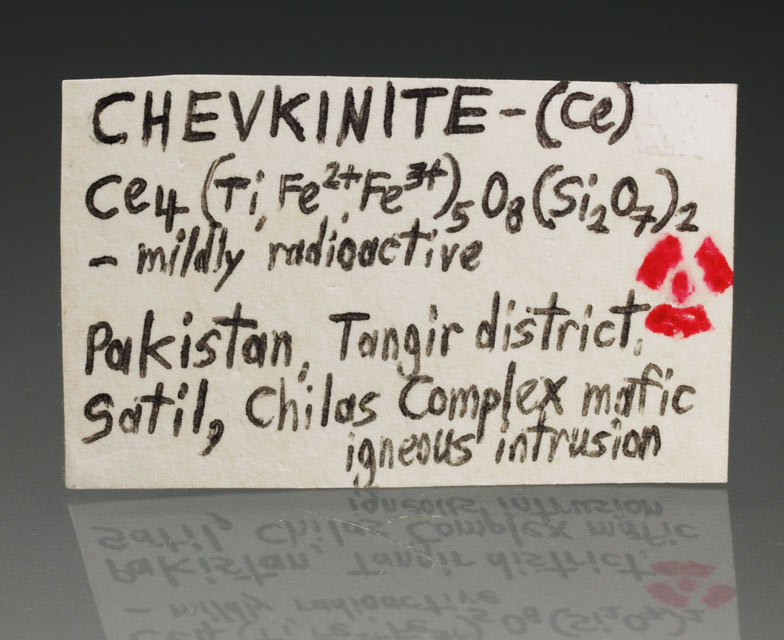 CHEVKINITE-(Ce)
Ce₄(Ti,Fe²⁺,Fe³⁺)₅O₈(Si₂O₇)₂
- mildly radioactive
Pakistan, Tangir district,
Satil, Chilas Complex mafic
igneous intrusion